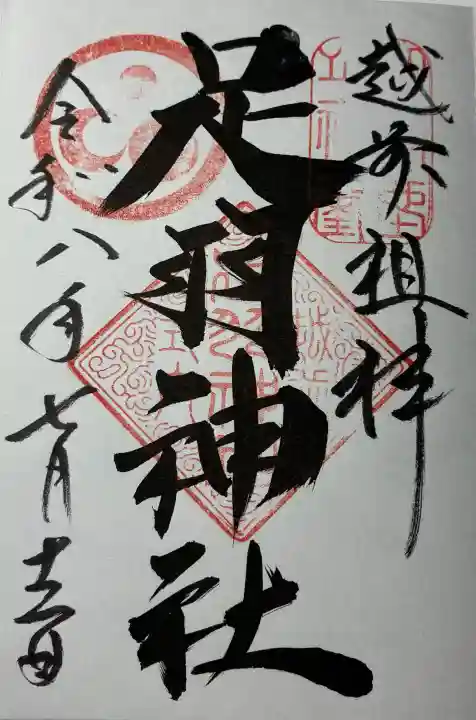 越前祖神
足羽神社
令和八年七月十三日